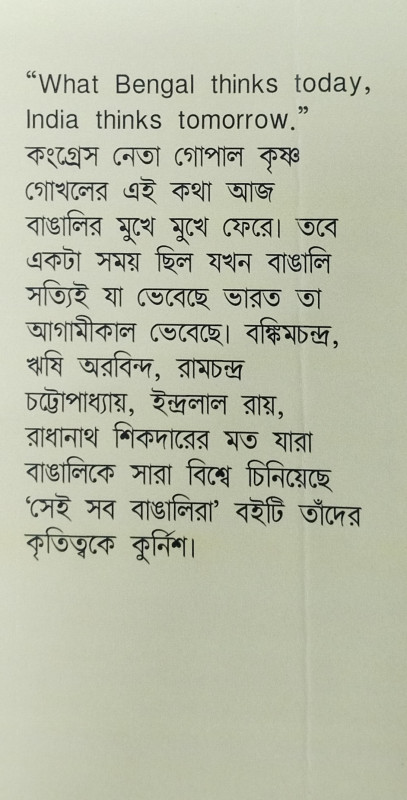 “What Bengal thinks today,
India thinks tomorrow.”
কংগ্রেস নেতা গোপাল কৃষ্ণ
গোখলের এই কথা আজ
বাঙালির মুখে মুখে ফেরে। তবে
একটা সময় ছিল যখন বাঙালি
সত্যিই যা ভেবেছে ভারত তা
আগামীকাল ভেবেছে। বঙ্কিমচন্দ্র,
ঋষি অরবিন্দ, রামচন্দ্র
চট্টোপাধ্যায়, ইন্দ্রলাল রায়,
রাধানাথ শিকদারের মত যারা
বাঙালিকে সারা বিশ্বে চিনিয়েছে
‘সেই সব বাঙালিরা’ বইটি তাঁদের
কৃতিত্বকে কুর্নিশ।